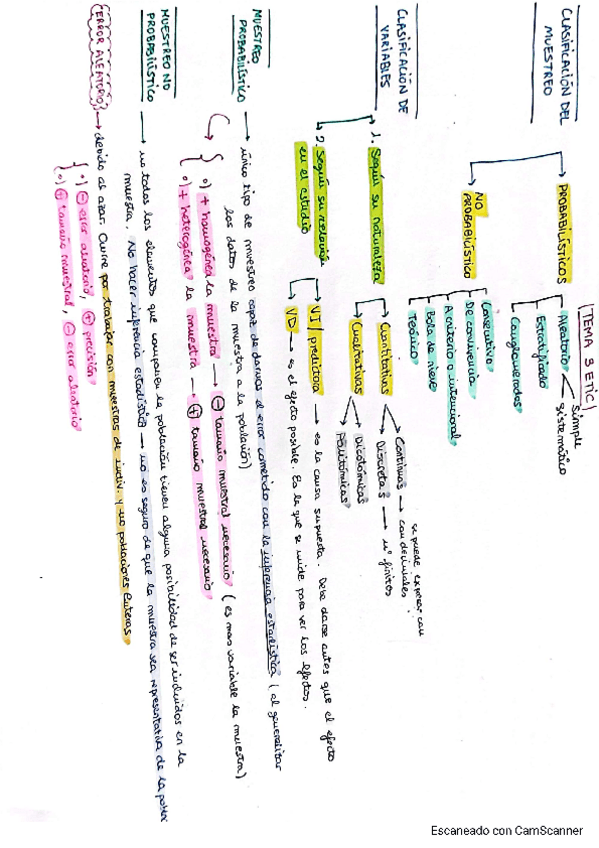 TEMA 3 ETIC
CLASIFICACIÓN DEL MUESTREO
PROBABILÍSTICOS
Aleatorio
simple
sistemático
Estratificado
Conglomerados
NO PROBABILÍSTICO
Consecutivo
De conveniencia
A criterio o intencional
Bola de nieve
Teórico
CLASIFICACIÓN DE VARIABLES
1. Según su naturaleza
Cuantitativas
Continuas → se puede expresar con con decimales
Discretas → nº finitos
Cualitativas
Dicotómicas
Politómicas
2. Según su relación en el estudio
VI/predictora → es la causa supuesta. Debe darse antes que el efecto
VD → es el efecto posible. Es la que se mide para ver los efectos.
MUESTREO PROBABILÍSTICO → único tipo de muestreo capaz de darnos el error cometido con la inferencia estadística (al generalizar
los datos de la muestra a la población)
o) + homogénea la muestra → ⊖ tamaño muestral necesario
o) + heterogénea la muestra → ⊕ tamaño muestral necesario (es mas variable la muestra)
MUESTREO NO PROBABILÍSTICO → no todos los elementos que componen la población tienen alguna posibilidad de ser incluidos en la
muestra. No hacer inferencia estadística → no es seguro de que la muestra sea representativa de la
ERROR ALEATORIO → debido al azar. Ocurre por trabajar con muestras de indiv. y no poblaciones enteras
o) ⊖ error aleatorio, ⊕ precisión
o) ⊕ tamaño muestral, ⊖ error aleatorio
Escaneado con CamScanner